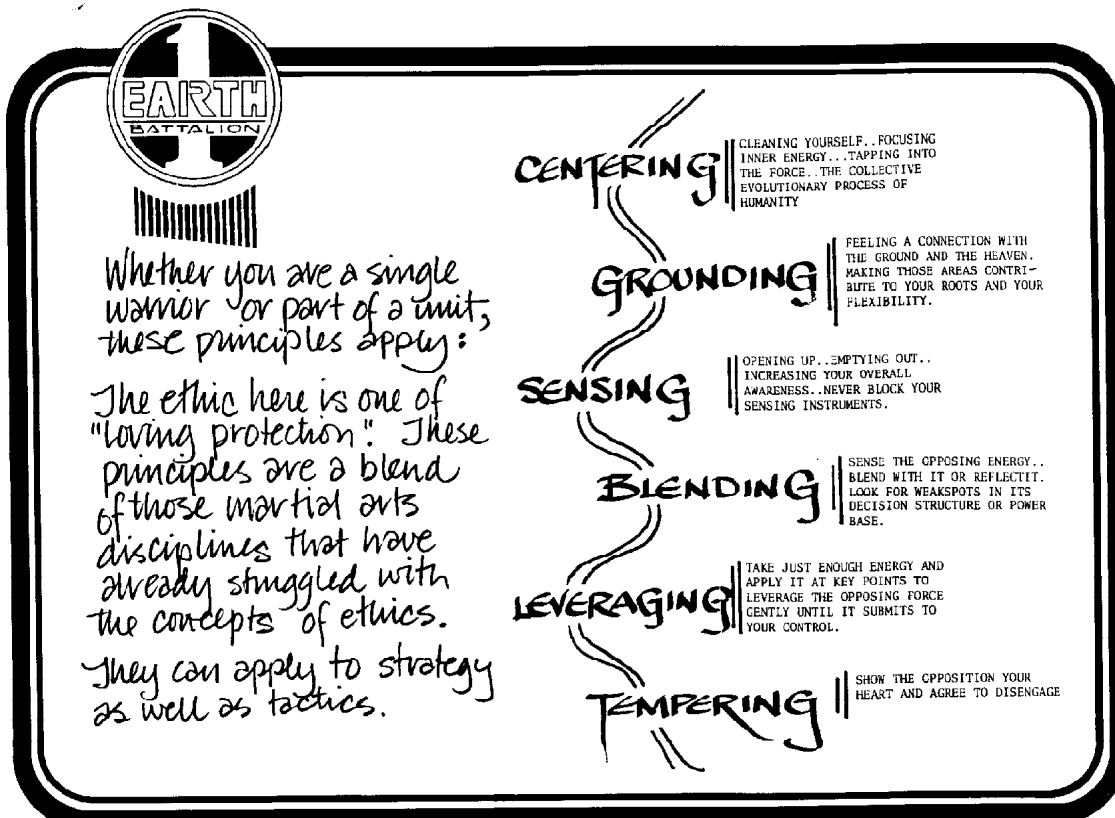 1
EARTH
BATTALION
Whether you are a single
warrior or part of a unit,
these principles apply:
The ethic here is one of
"loving protection". These
principles are a blend
of those martial arts
disciplines that have
already struggled with
the concepts of ethics.
They can apply to strategy
as well as tactics.
CENTERING
CLEANING YOURSELF..FOCUSING
INNER ENERGY...TAPPING INTO
THE FORCE..THE COLLECTIVE
EVOLUTIONARY PROCESS OF
HUMANITY
GROUNDING
FEELING A CONNECTION WITH
THE GROUND AND THE HEAVEN.
MAKING THOSE AREAS CONTRI-
BUTE TO YOUR ROOTS AND YOUR
FLEXIBILITY.
SENSING
OPENING UP..EMPTYING OUT..
INCREASING YOUR OVERALL
AWARENESS..NEVER BLOCK YOUR
SENSING INSTRUMENTS.
BLENDING
SENSE THE OPPOSING ENERGY..
BLEND WITH IT OR REFLECTIT.
LOOK FOR WEAKSPOTS IN ITS
DECISION STRUCTURE OR POWER
BASE.
LEVERAGING
TAKE JUST ENOUGH ENERGY AND
APPLY IT AT KEY POINTS TO
LEVERAGE THE OPPOSING FORCE
GENTLY UNTIL IT SUBMITS TO
YOUR CONTROL.
TEMPERING
SHOW THE OPPOSITION YOUR
HEART AND AGREE TO DISENGAGE